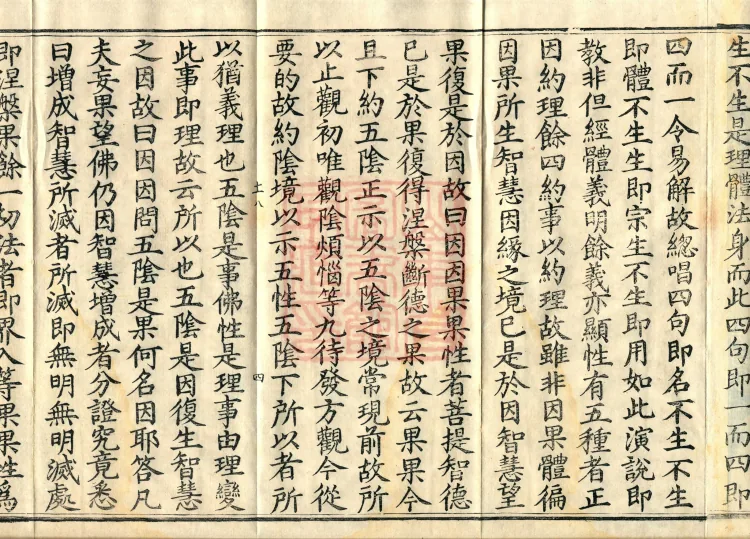 生不生是理體法身而此四句即一而四即
四而一令易解故緫唱四句即名不生不生
即體不生生即宗生不生即用如此演說即
教非但經體義明餘義亦顯性有五種者正
因約理餘四約事以約理故雖非因果體徧
因果所生智慧因緣之境已是於因智慧望
果復是於因故曰因因果果性者菩提智德
已是於果復得涅槃斷德之果故云果果今
且下約五陰正示以五陰之境常現前故所
以止觀初唯觀陰煩惱等九待發方觀今從
要的故約陰境以示五性五陰下所以者所
土八 四
以猶義理也五陰是事佛性是理事由理變
此事即理故云所以也五陰是因復生智慧
之因故曰因因問五陰是果何名因耶答凡
夫妄果望佛仍因智慧增成者分證究竟悉
曰增成智慧所滅者所滅即無明無明滅處
即涅槃果餘一切法者即界入等果果性爲